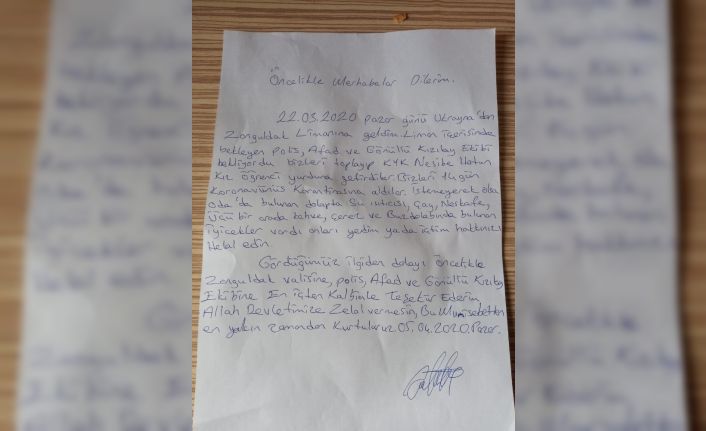 Öncelikle Merhabalar Dilerim.
22.03.2020 Pazar günü Ukrayna'dan
Zonguldak Limanına geldim. Liman içerisinde
bekleyen Polis, Afad ve Gönüllü Kızılay Ekibi
bekliyordu bizleri toplayıp KYK Nesibe Hatun
Kız öğrenci yurduna getirdiler. Bizleri 14 gün
Koronavürüs Karantinasına aldılar. İstemeyerek olsa
Oda'da bulunan dolapta Su ısıtıcısı, Çay, Neskafe,
Üçü bir arada kahve, çerez ve Buzdolabında bulunan
içicekler vardı onları yedim yada içtim hakkınızı
Helal edin.
Gördüğümüz ilgiden dolayı Öncelikle
Zonguldak valisine, polis, Afad ve Gönüllü Kızılay
Ekibine En içten Kalbimle Teşekür Ederim
Allah Devletimize Zelal vermesin, Bu
en yakın zamanda Kurtuluruz 05.04.2020. Pazar.